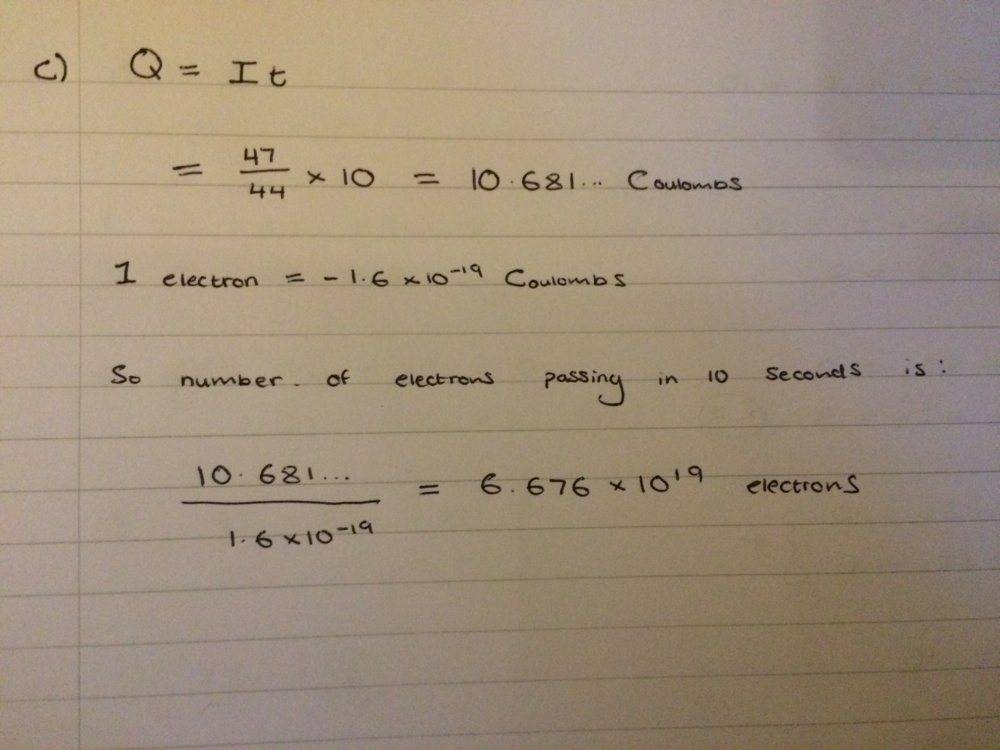 c) Q = It
= 47/44 × 10 = 10.681... Coulombs
1 electron = -1.6 × 10⁻¹⁹ Coulombs
So number. of electrons passing in 10 seconds is:
10.681... / 1.6 × 10⁻¹⁹ = 6.676 × 10¹⁹ electrons